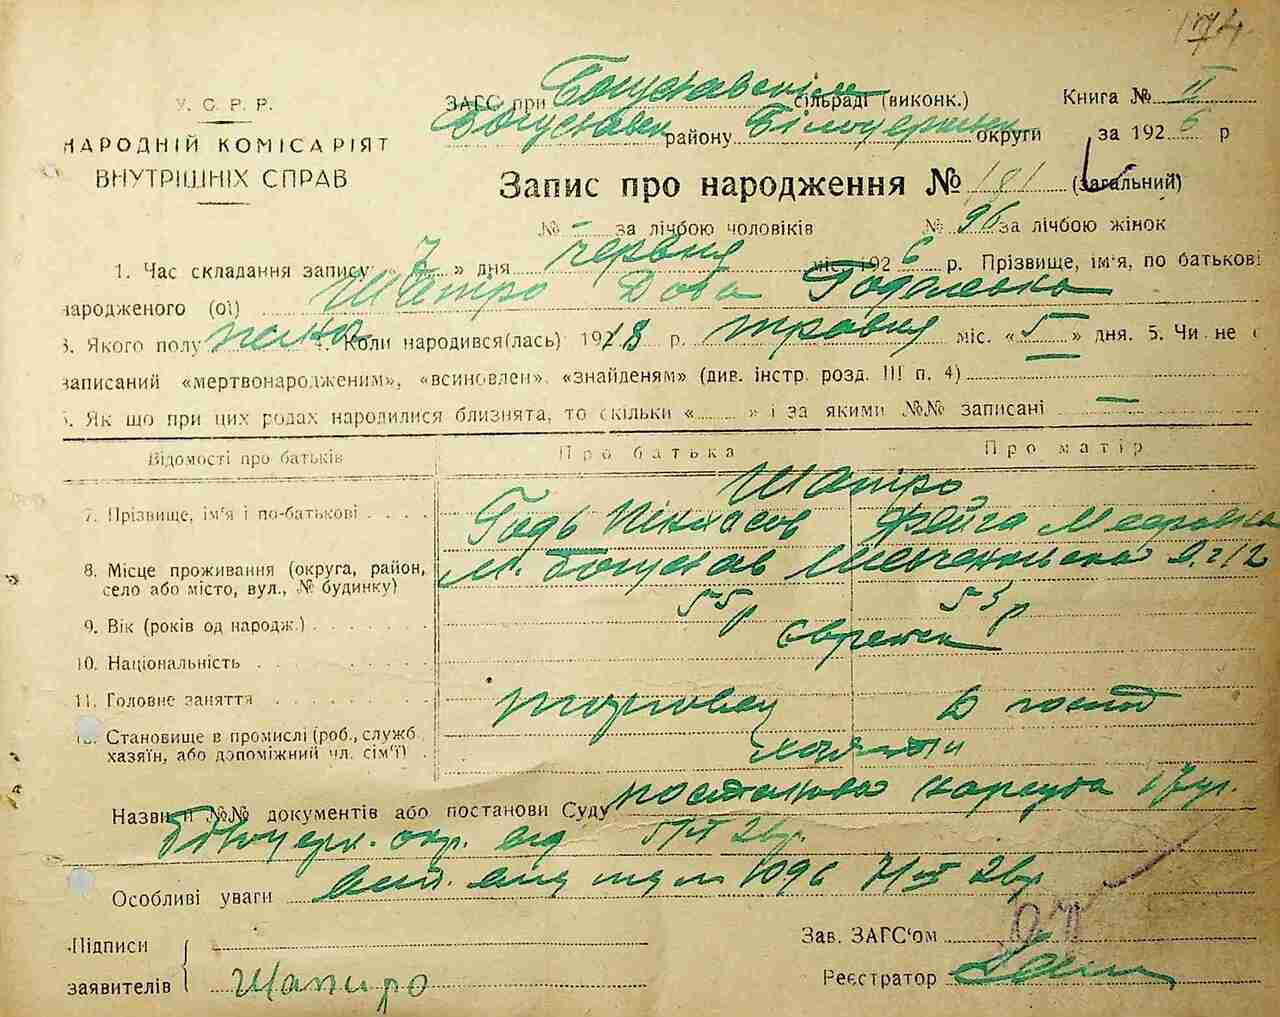 174.
У. С. Р. Р.
НАРОДНІЙ КОМІСАРІЯТ
ВНУТРІШНІХ СПРАВ
ЗАГС при Богуславськім сільраді (виконк.) Книга № II
Богуславськ району Білоцерківськ округи за 1926 р
Запис про народження № 181 (загальний)
№ - за лічбою чоловіків № 96 за лічбою жінок
1. Час складання запису „ 7 » дня червня міс. 1926 р. Прізвище, ім'я, по батькові
народженого (ої) Шапіро Дова Годелевна
3. Якого полу жіно 4. Коли народився(лась) 1918 р. травня міс. « 5 » дня. 5. Чи не є
записаний «мертвонародженим», «всиновлен», «знайденям» (див. інстр. розд. III п. 4) —
6. Як що при цих родах народилися близнята, то скільки « » і за якими №№ записані —
Відомості про батьків Про батька Про матір
Шапіро
7. Прізвище, ім'я і по-батькові Годь Пінхасов Фейга Мееровна
8. Місце проживання (округа, район, село або місто, вул., № будинку) м. Богуслав Шевченківська 12
9. Вік (років од народж.) 55р 53р
10. Національність Євреи
11. Головне заняття торговец Д госпо
12. Становище в промислі (роб., служб. хазяїн, або допоміжний чл. сім'ї)
Назви й №№ документів або постанови Суду постанова нарсуда 17
Білоцерк. окр. від 5/VI 26р.
Особливі уваги 1096 7/VI 26р
Підписи
заявителів Шапиро
Зав. ЗАГС'ом
Реєстратор